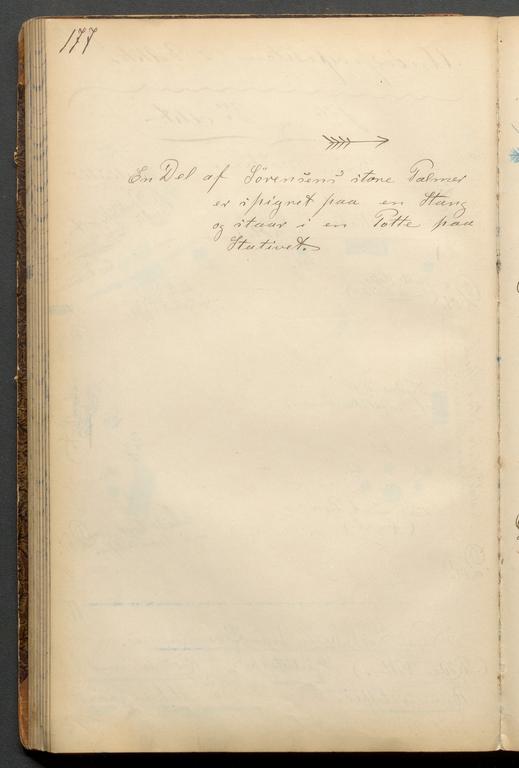 177
En Del af Sörensens store Palmer
er spigret paa en Stang
og staar i en Potte paa
Stativet.